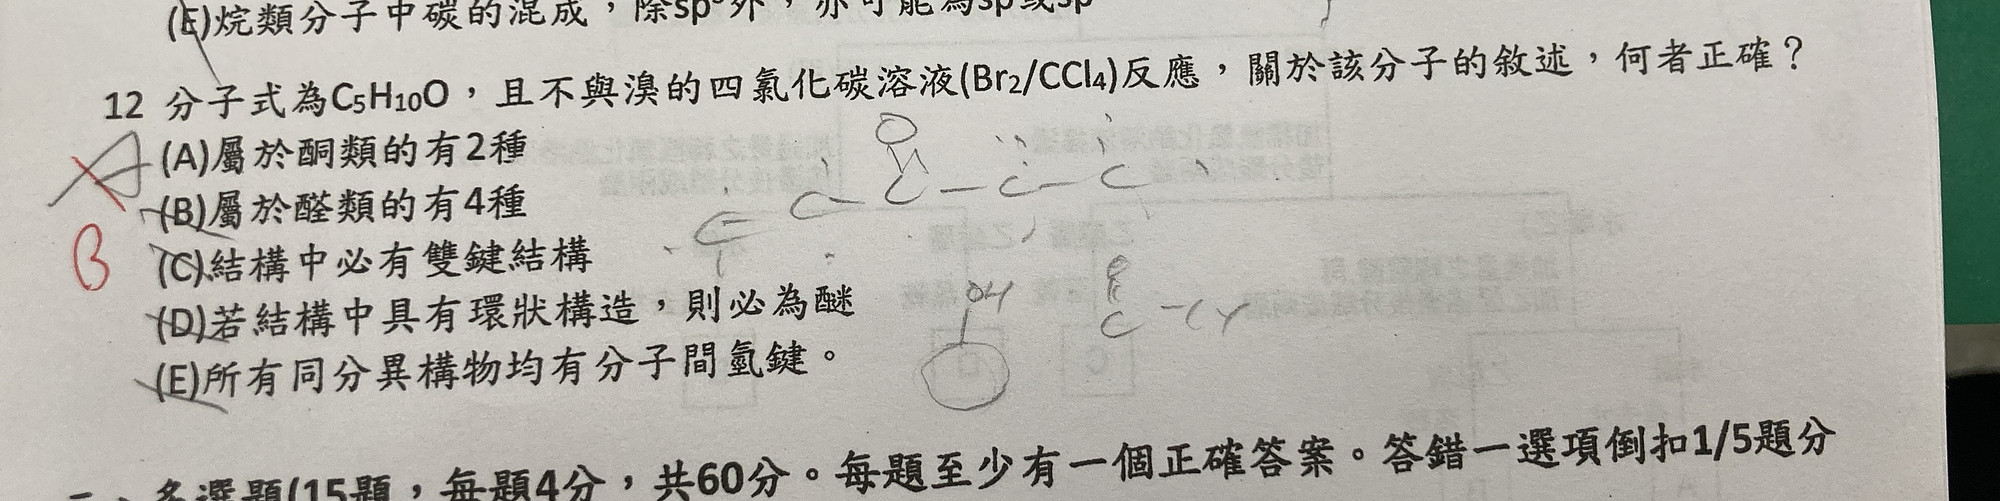 (E)烷類分子中碳的混成，除sp³外，亦可能為sp或sp
12 分子式為C₅H₁₀O，且不與溴的四氯化碳溶液(Br₂/CCl₄)反應，關於該分子的敘述，何者正確？
(A)屬於酮類的有2種
(B)屬於醛類的有4種
B
(C)結構中必有雙鍵結構
(D)若結構中具有環狀構造，則必為醚
(E)所有同分異構物均有分子間氫鍵。
O
C C C — C — C
OH
O
C
二、多選題(15題，每題4分，共60分。每題至少有一個正確答案。答錯一選項倒扣1/5題分